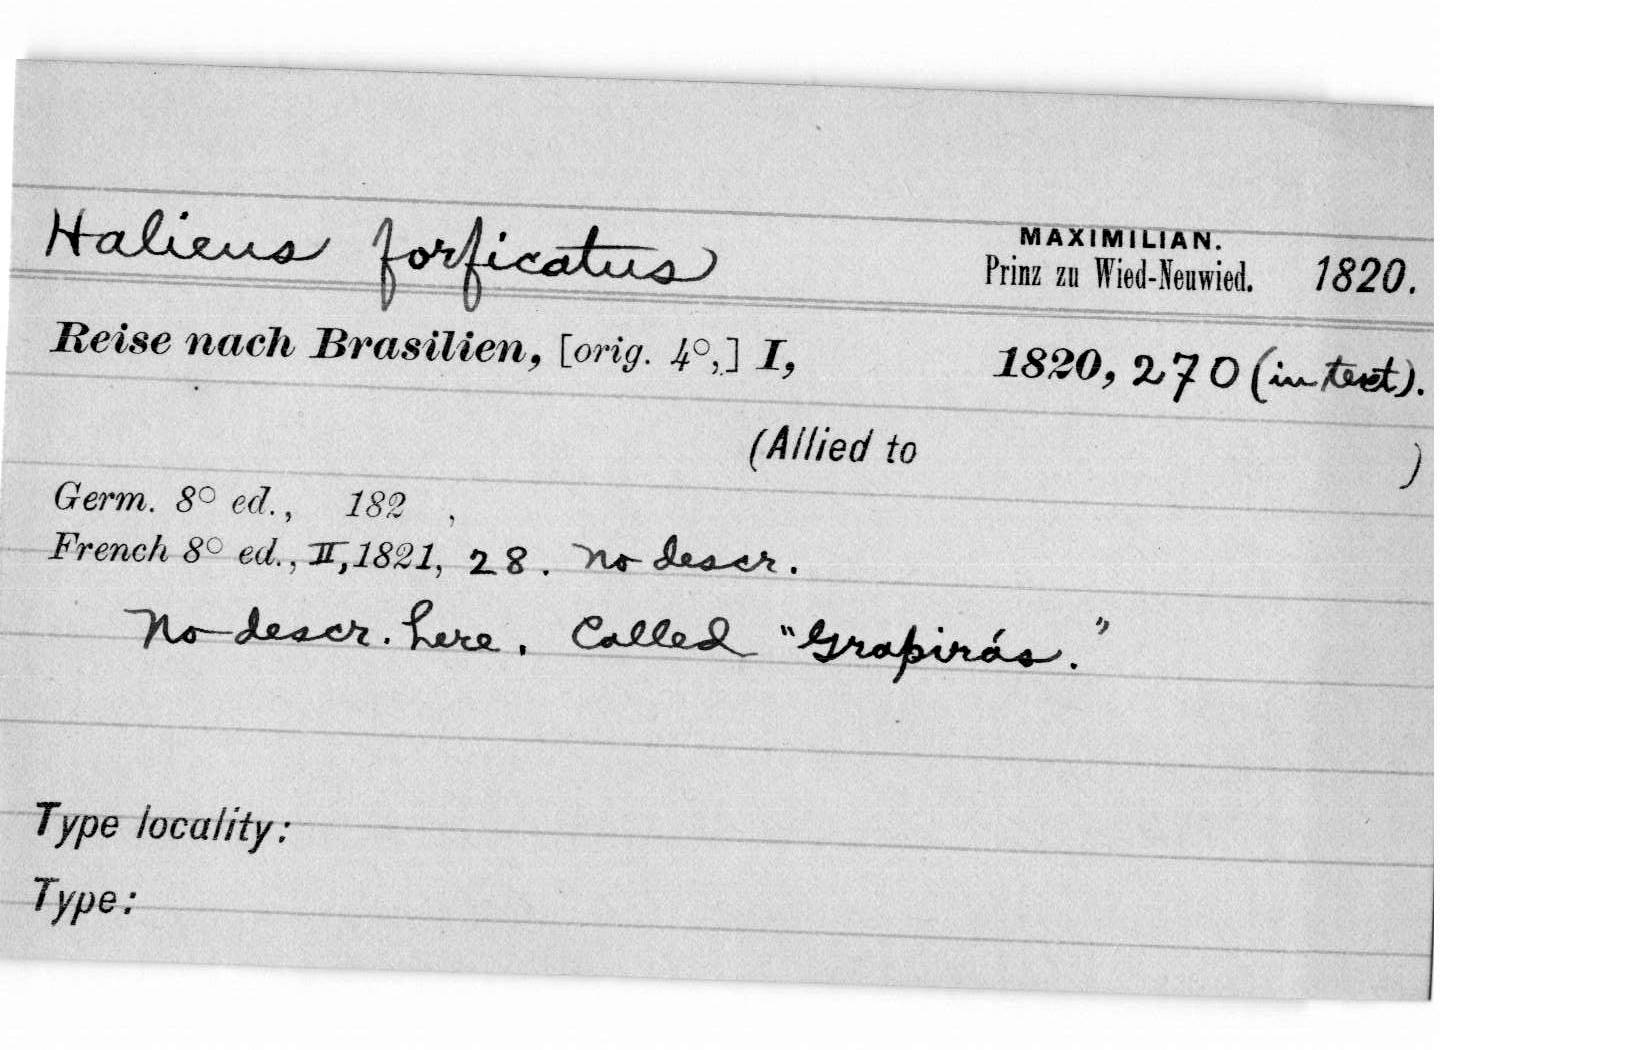 Halieus forficatus MAXIMILIAN.
Prinz zu Wied-Neuwied. 1820.
Reise nach Brasilien, [orig. 4°,] I, 1820, 270 (in text).
(Allied to )
Germ. 8° ed., 182 ,
French 8° ed., II, 1821, 28. No descr.
No descr. here. Called "Grapirás."
Type locality:
Type: